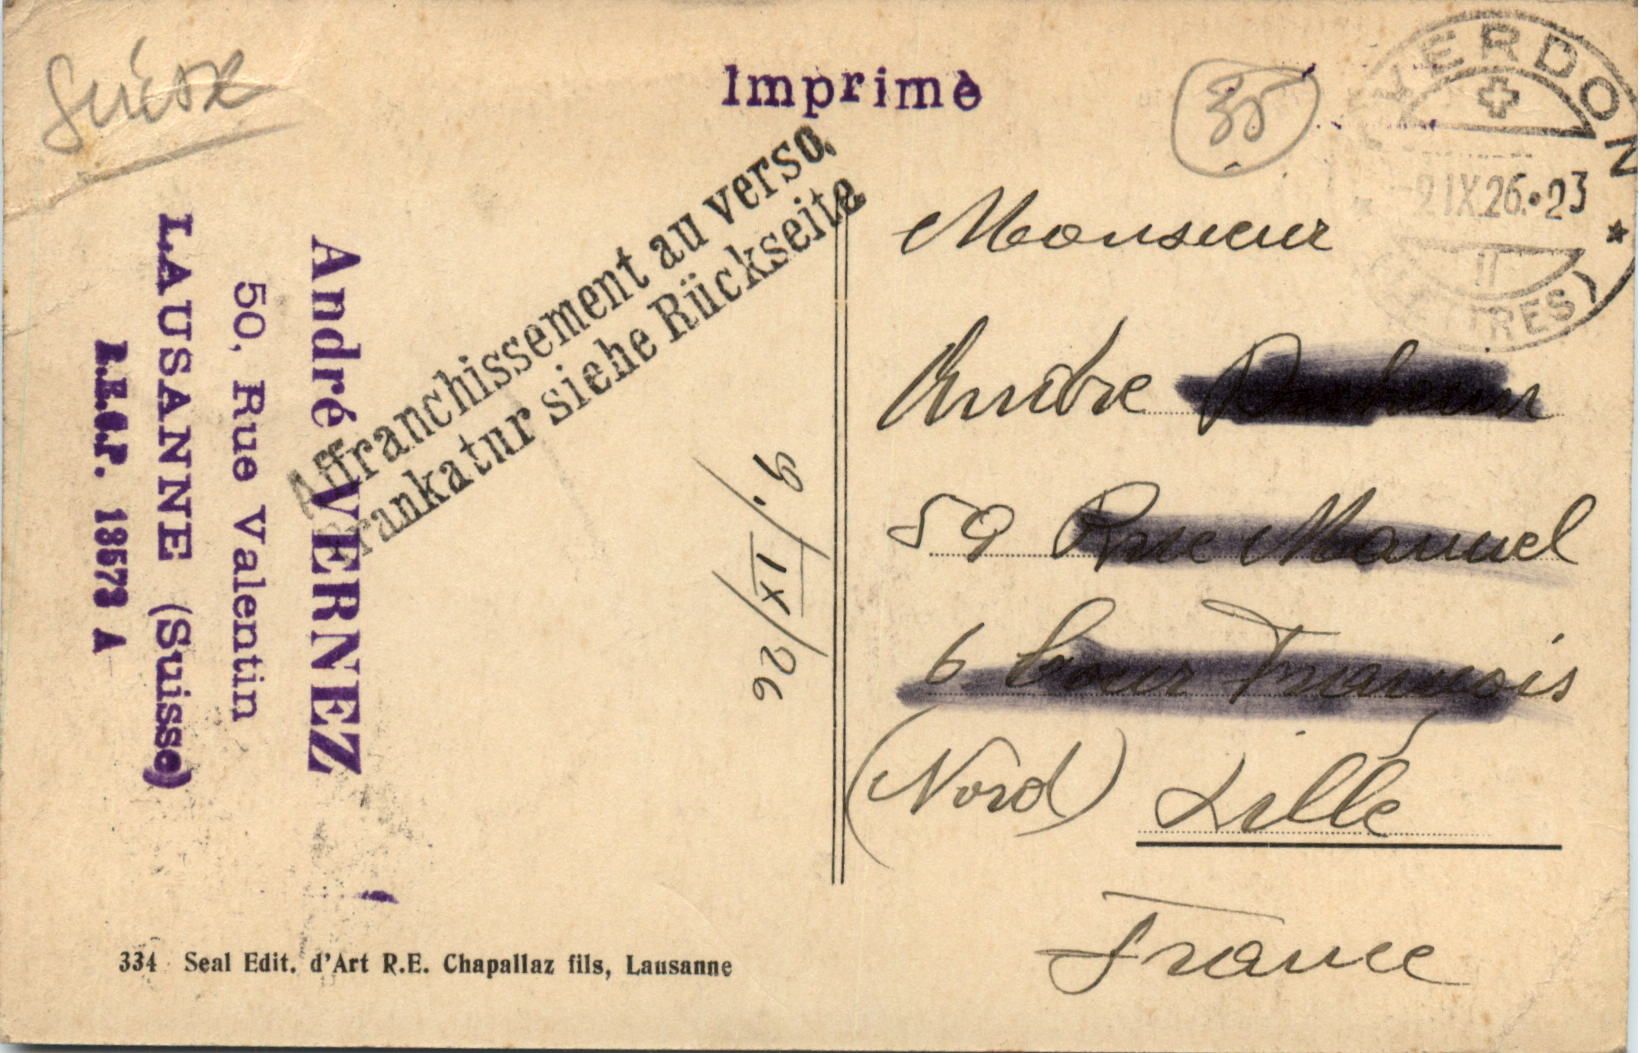 Suisse
Imprimè
35
YVERDON
IX.26.•23
II
(LETTRES)
Affranchissement au verso.
Frankatur siehe Rückseite
André VERNEZ
50, Rue Valentin
LAUSANNE (Suisse)
13573 A
9. / IX / 26
Monsieur
André
59 Rue Manuel
6 Cour François
(Nord) Lille
France
334 Seal Edit. d'Art R.E. Chapallaz fils, Lausanne